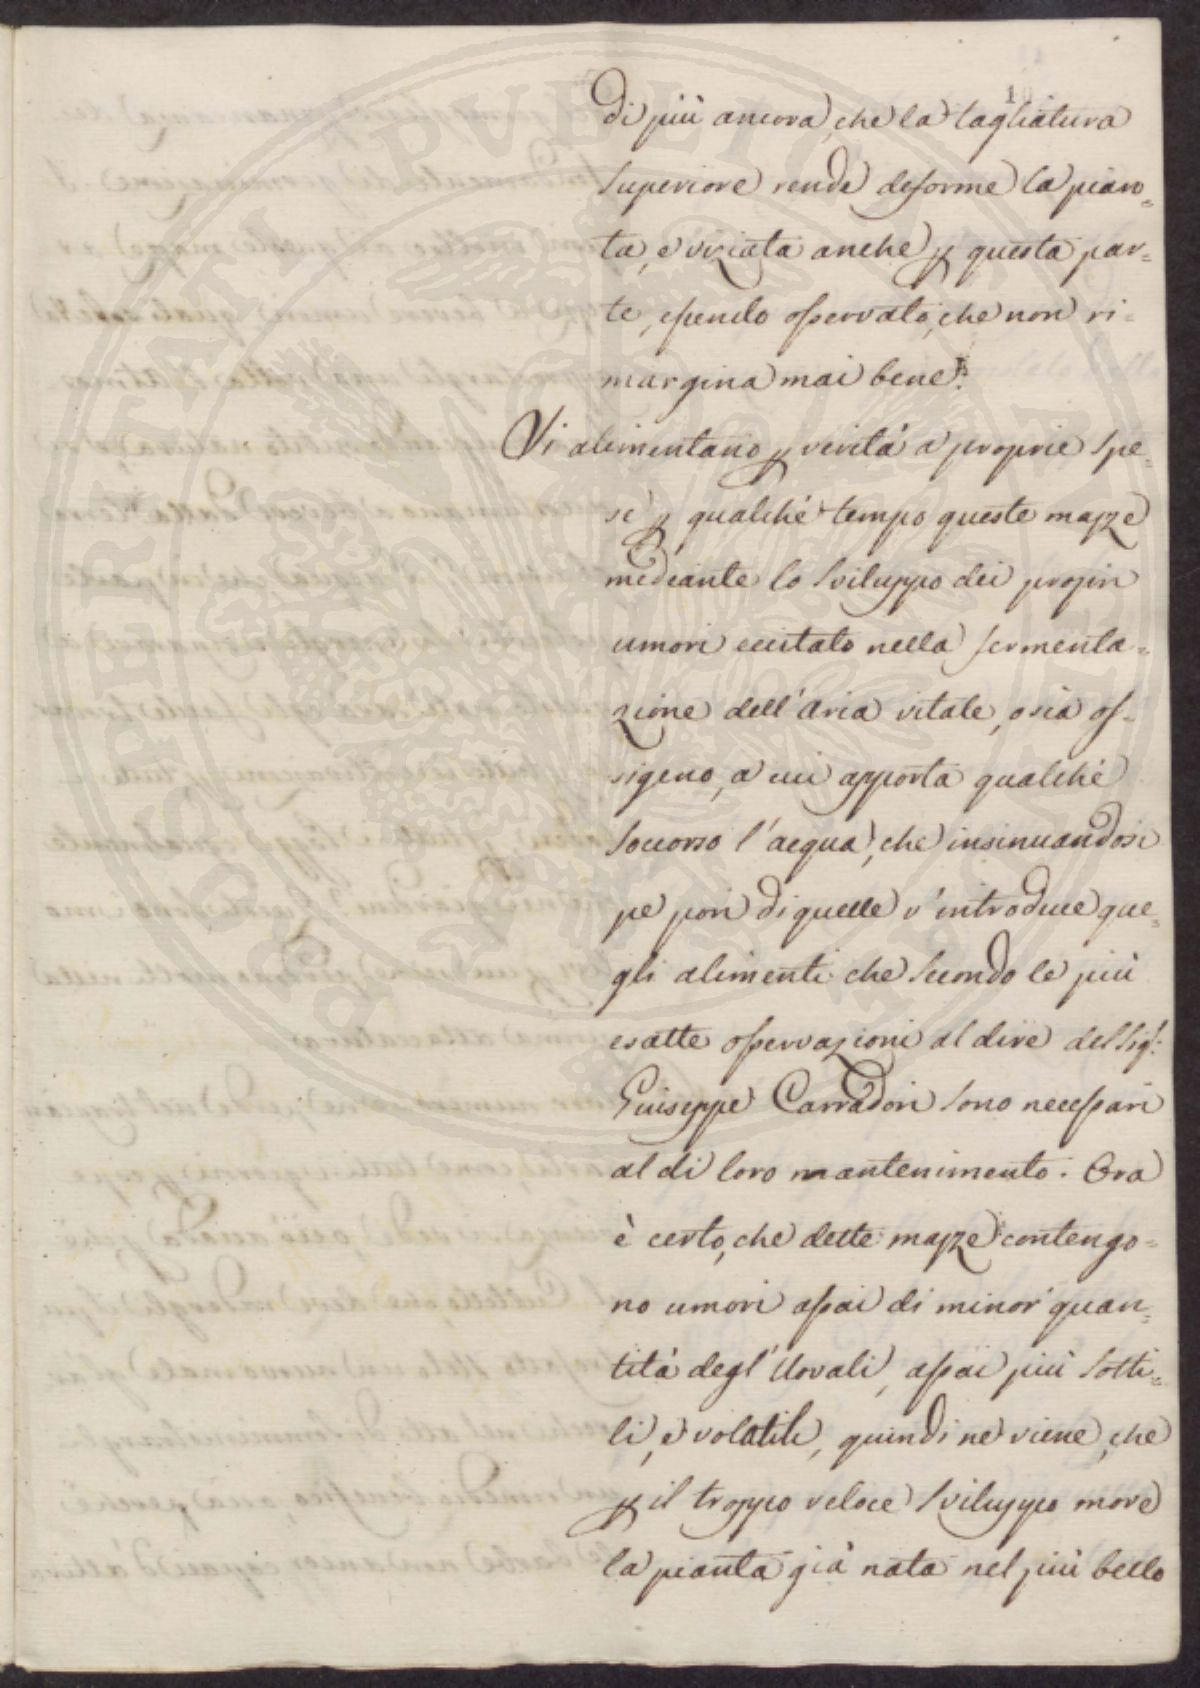 10
di più ancora, che la tagliatura
superiore rende deforme la pian=
ta, e viziata anche p questa par=
te, essendo osservato, che non ri=
margina mai bene.
Si alimentano p verità a proprie spe=
se p qualche tempo queste mazze
mediante lo sviluppo dei proprj
umori eccitato nella fermenta=
zione dell'Aria vitale, o sia os=
sigeno, a cui apporta qualche
soccorso l'acqua, che insinuandosi
pe pori di quelle v'introduce que=
gli alimenti che secondo le più
esatte osservazioni al dire del Sig.r
Giuseppe Carradori sono necessari
al di loro mantenimento. Ora
è certo, che dette mazze contengo=
no umori assai di minor quan=
tità degl'Uovali, assai più sotti=
li, e volatili, quindi ne viene, che
p il troppo veloce sviluppo more
la pianta già nata nel più bello
PROSPERITATI PUBLICAE AUGENDAE